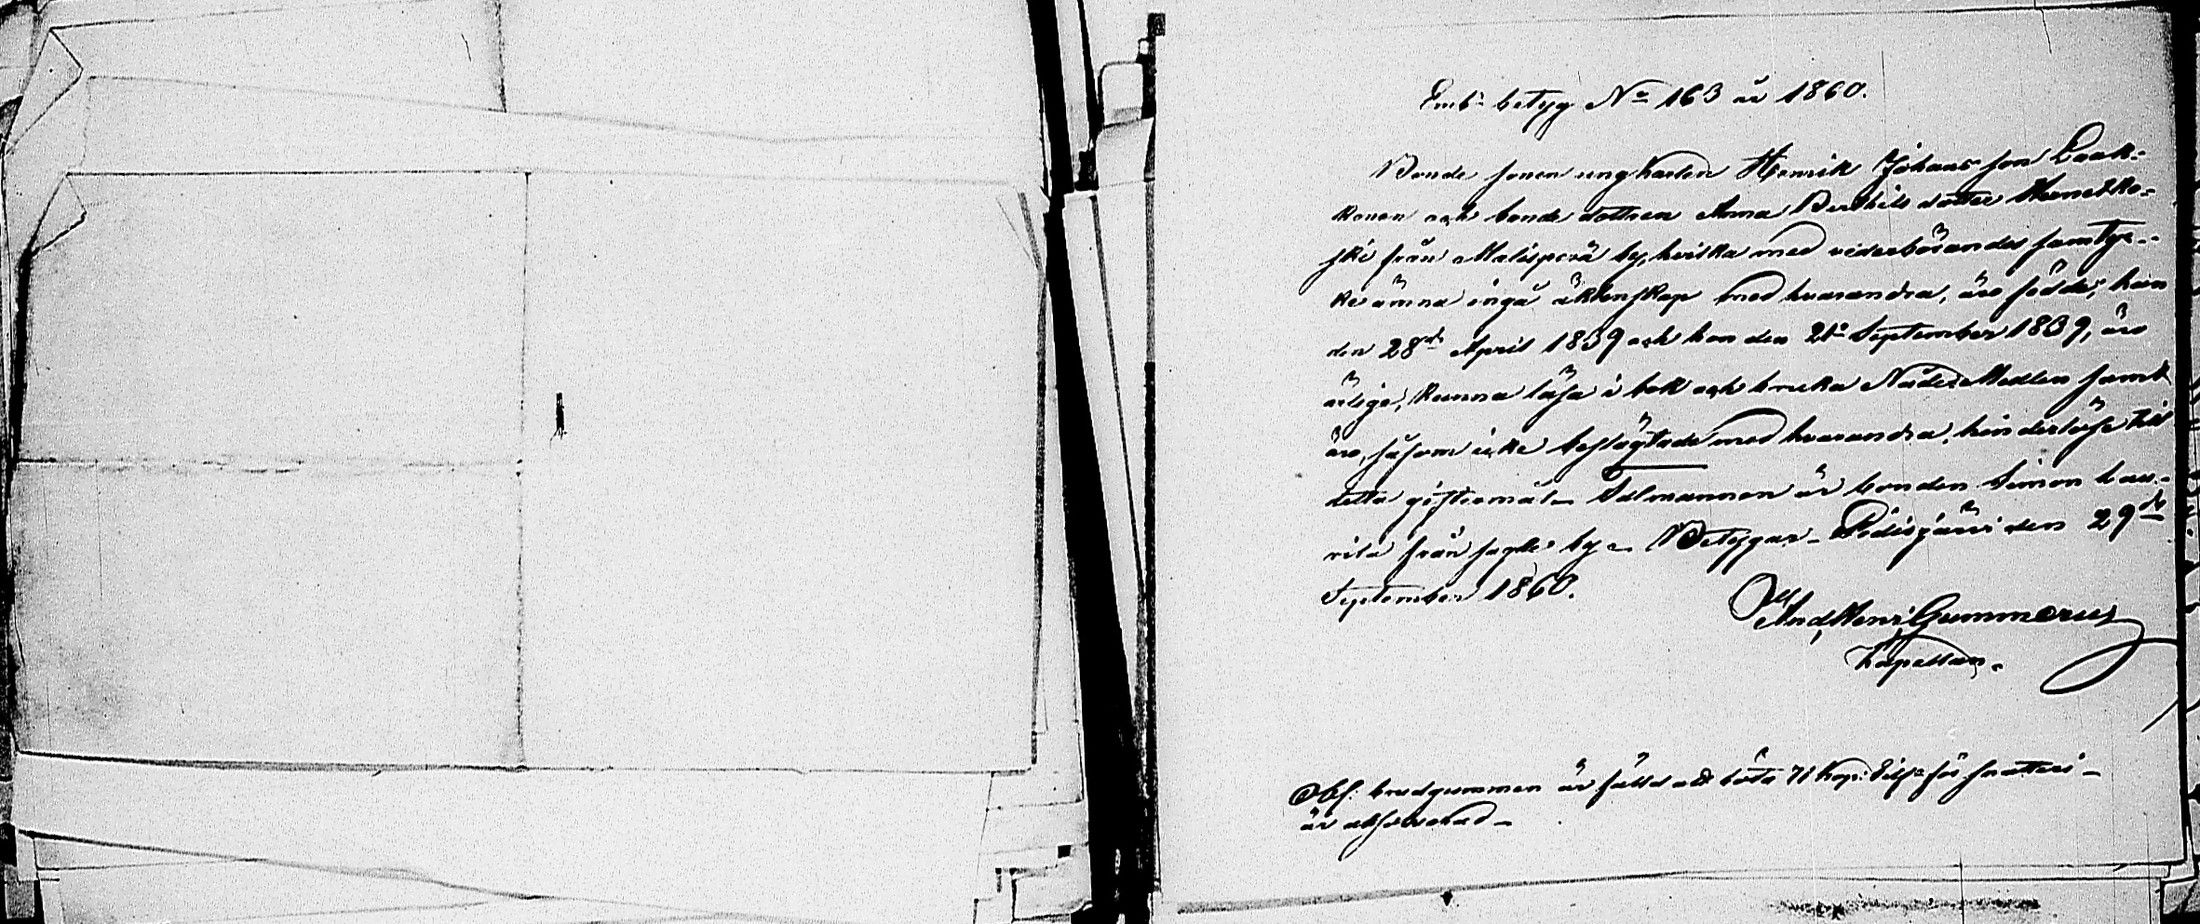 Emb:s betyg No 163 år 1860.
Bonde sonen ungkarlen Henrik Johansson Laak-
konen och bonde dottren Anna Bertils dotter
från Malisperä by, hvilka med vederbörandes samtyc-
ke ämna ingå äktenskap med hvarandra, äro födde, han
den 28de April 1839 och hon den 21e September 1839, äro
ärlige, kunna läsa i bok och bruka Nådes Medlen samt
äro, såsom icke beslägtade med hvarandra, hinderlöse till
detta giftermål. Talmannen är bonden Simon
från sagde by. Betygar Pidisjärvi den 29de
September 1860.
And. Henr. Gummerus
Kapellan.
Obs: brudgummen är fälld att böta 71 kop: Silfr för snatteri